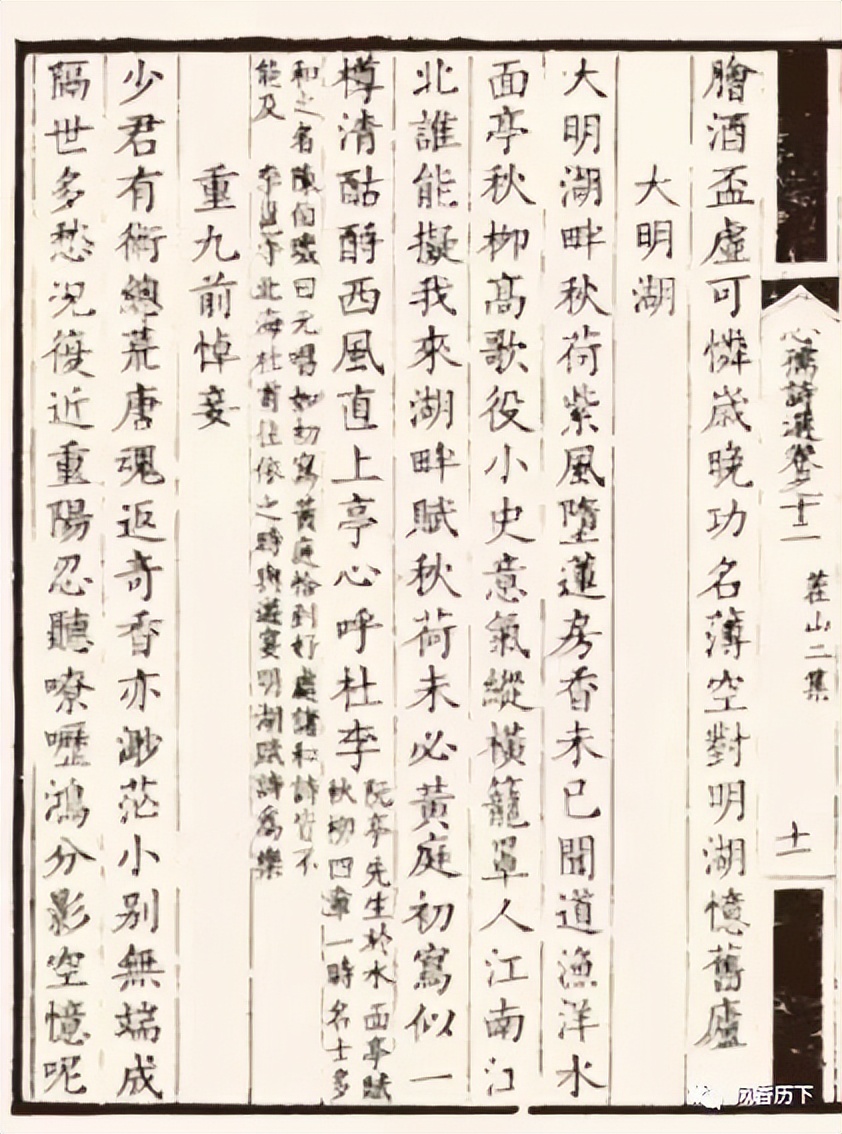 心孺詩選卷之十二
茬山二集
十一
膾酒盃虛可憐歲晚功名薄空對明湖憶舊廬
大明湖
大明湖畔秋荷紫風墮蓮房香未已聞道漁洋水
面亭秋柳高歌役小史意氣縱橫籠罩人江南江
北誰能擬我來湖畔賦秋荷未必黃庭初寫似一
樽清酤酹西風直上亭心呼杜李
阮亭先生於水面亭賦
秋柳四章一時名士多
和之名陳伯璣曰元唱如初寫黃庭恰到好處諸和詩皆不
能及 李北海杜甫往依之時與遊宴明湖賦詩為樂
重九前悼妾
少君有術總荒唐魂返奇香亦渺茫小別無端成
隔世多愁況復近重陽忍聽嘹嚦鴻分影空憶呢
风香历下